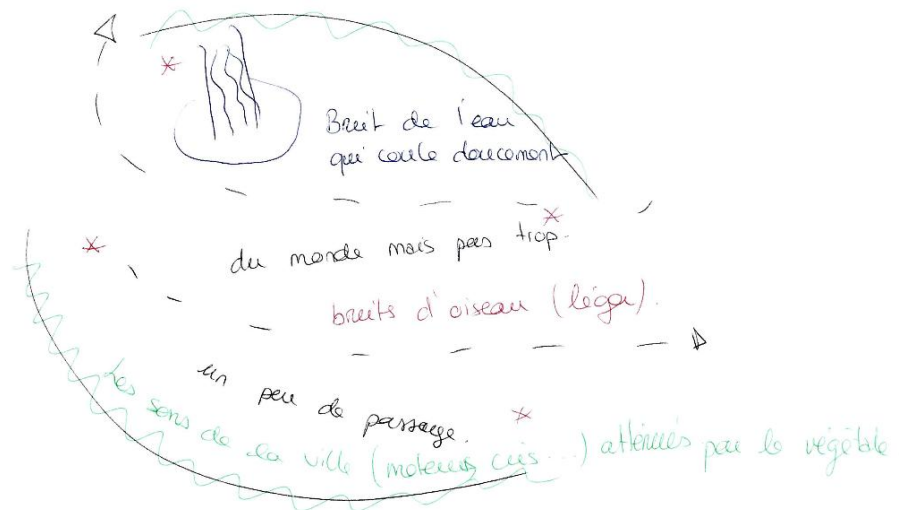 Bruit de l'eau
qui coule doucement
du monde mais pas trop.
bruits d'oiseau (léger).
un peu de passage.
Les sons de la ville (moteurs, cris...) atténués par le végétale